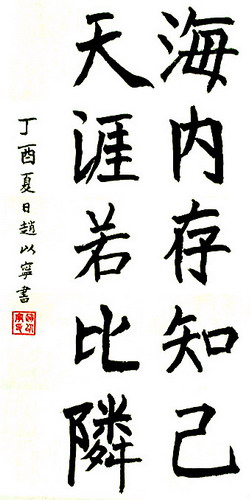 海内存知己
天涯若比隣
丁酉夏日趙以寧書